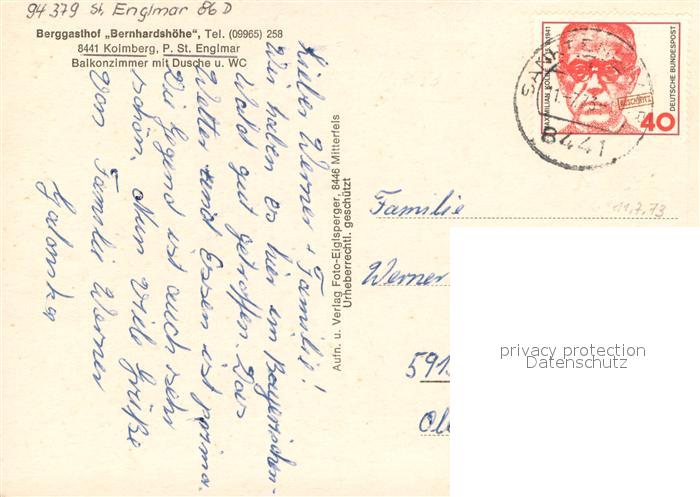 94379 St. Englmar 86 D
Berggasthof „Bernhardshöhe“, Tel. (09965) 258
8441 Kolmberg, P. St. Englmar
Balkonzimmer mit Dusche u. WC
Lieber Werner + Familie!
Wir haben es hier im Bayerischen-
Wald gut getroffen. Das
Wetter und Essen ist prima.
Die Gegend ist auch sehr
schön. Nun viele Grüße
von Familie Werner
Aufn. u. Verlag Foto-Eiglsperger, 8446 Mitterfels
Urheberrechtl. geschützt
MAXIMILIAN KOLBE
1941
AUSCHWITZ
DEUTSCHE BUNDESPOST
40
8441
11.7.73
Familie
Werner
591
privacy protection
Datenschutz